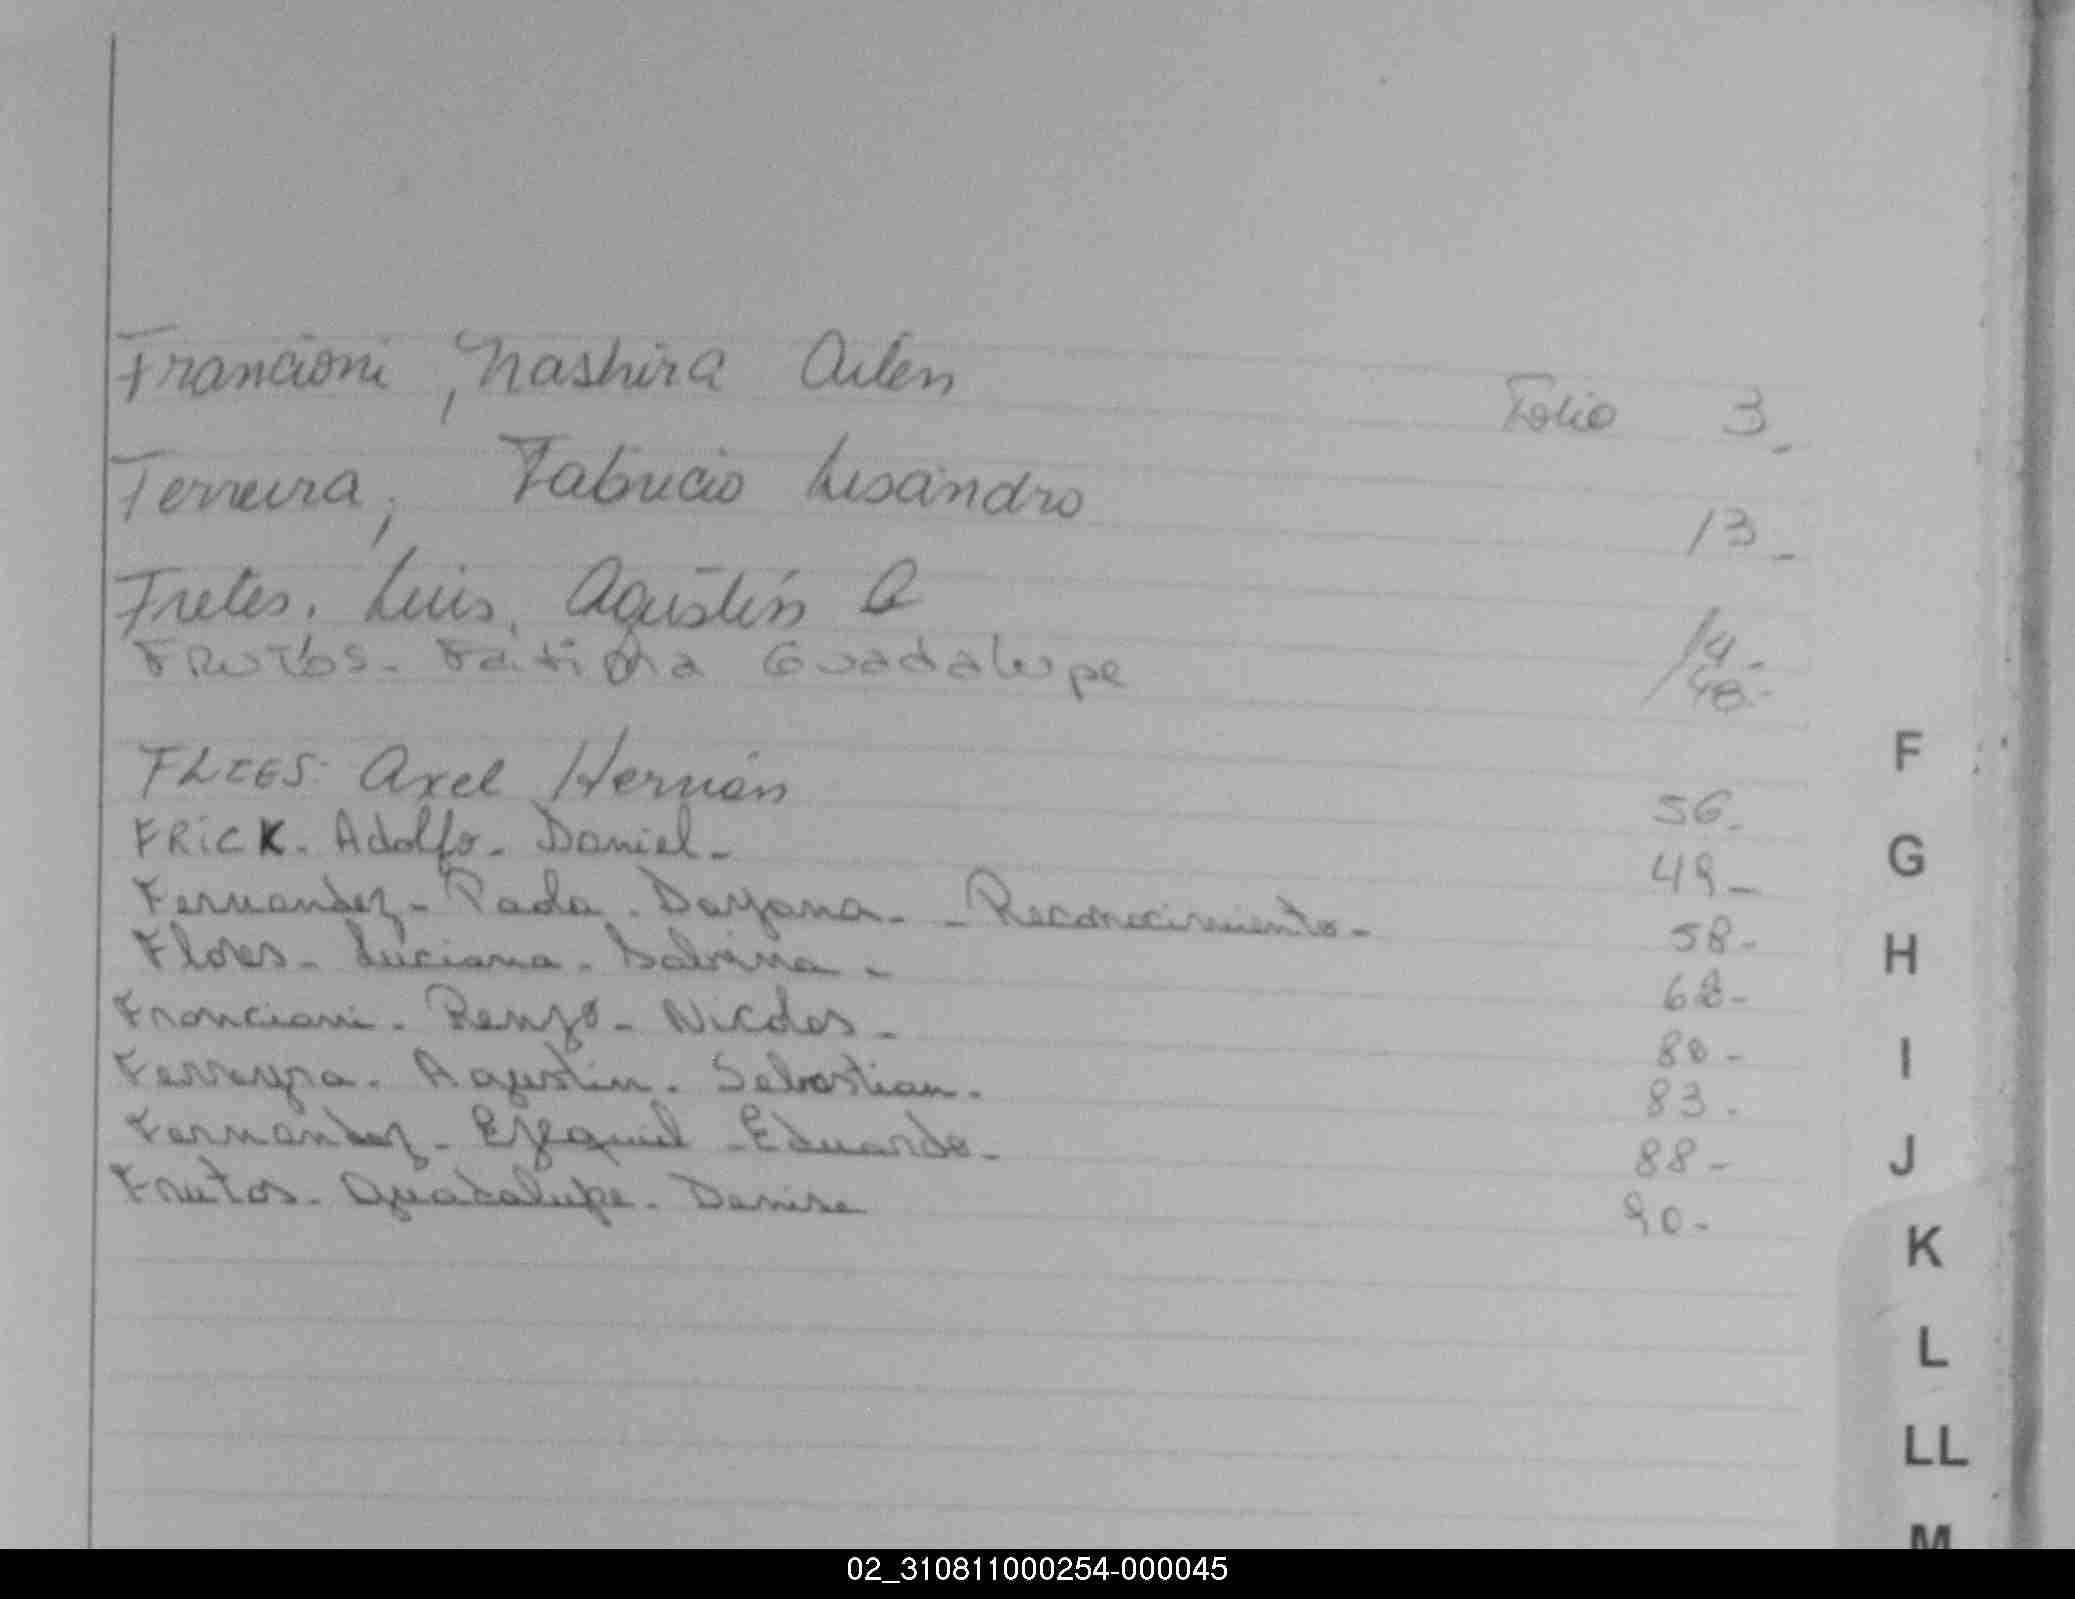 Francioni, Nashira Ailén Folio 3_
Ferreira, Fabricio Lisandro 13_
Fretes. Luis, Agustín
FRUTOS. Fatima Guadalupe 48.-
FLIES. Axel Hernán 56_
FRICK. Adolfo. Daniel_ 49_
Fernandez_ Paola. Dayana_ _ Reconocimiento_ 58_
Flores_ Luciana. Sabrina_ 68_
Francioni. Renzo_ Nicolas_ 80_
Ferreyra. Agustin. Sebastian. 83.
Fernandez_ Ezequiel _Eduardo_ 88_
Frutos. Guadalupe. Denise 90_
F
G
H
I
J
K
L
LL
M
02_310811000254-000045